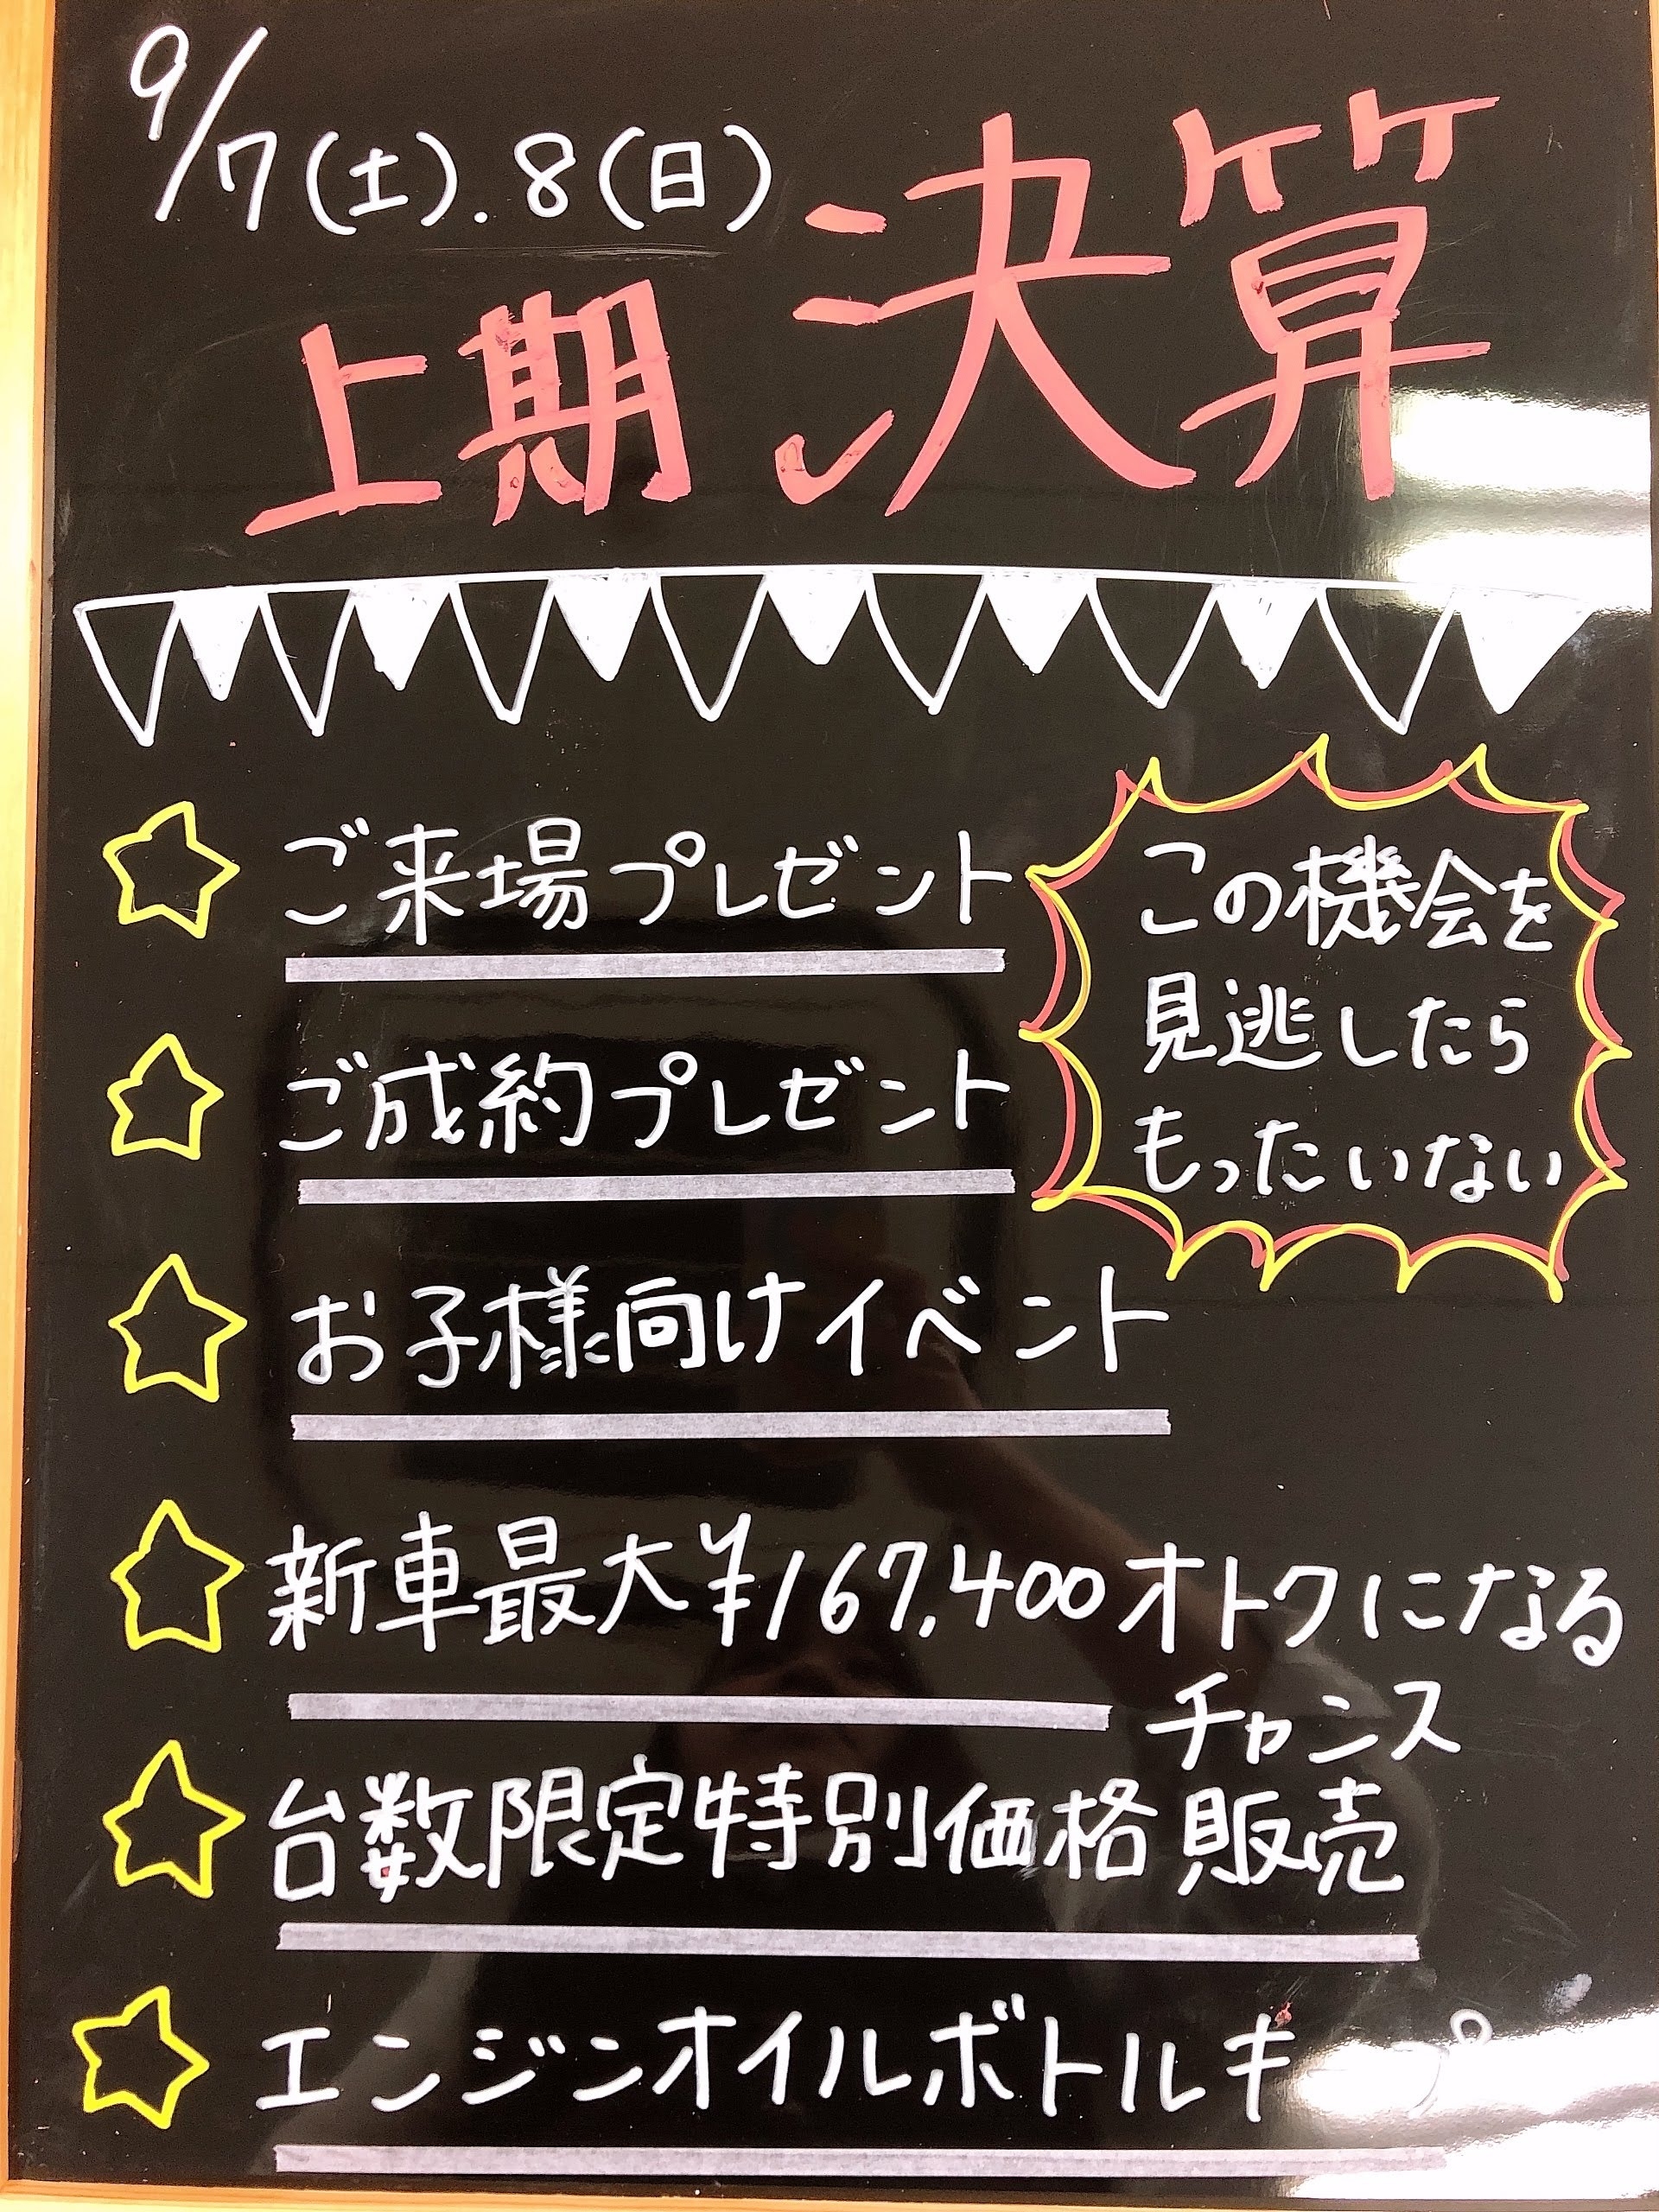 9/7(土).8(日)
上期決算
ご来場プレゼント
ご成約プレゼント
この機会を
見逃したら
もったいない
お子様向けイベント
新車最大¥167,400オトクになる
チャンス
台数限定特別価格販売
エンジンオイルボトルキープ